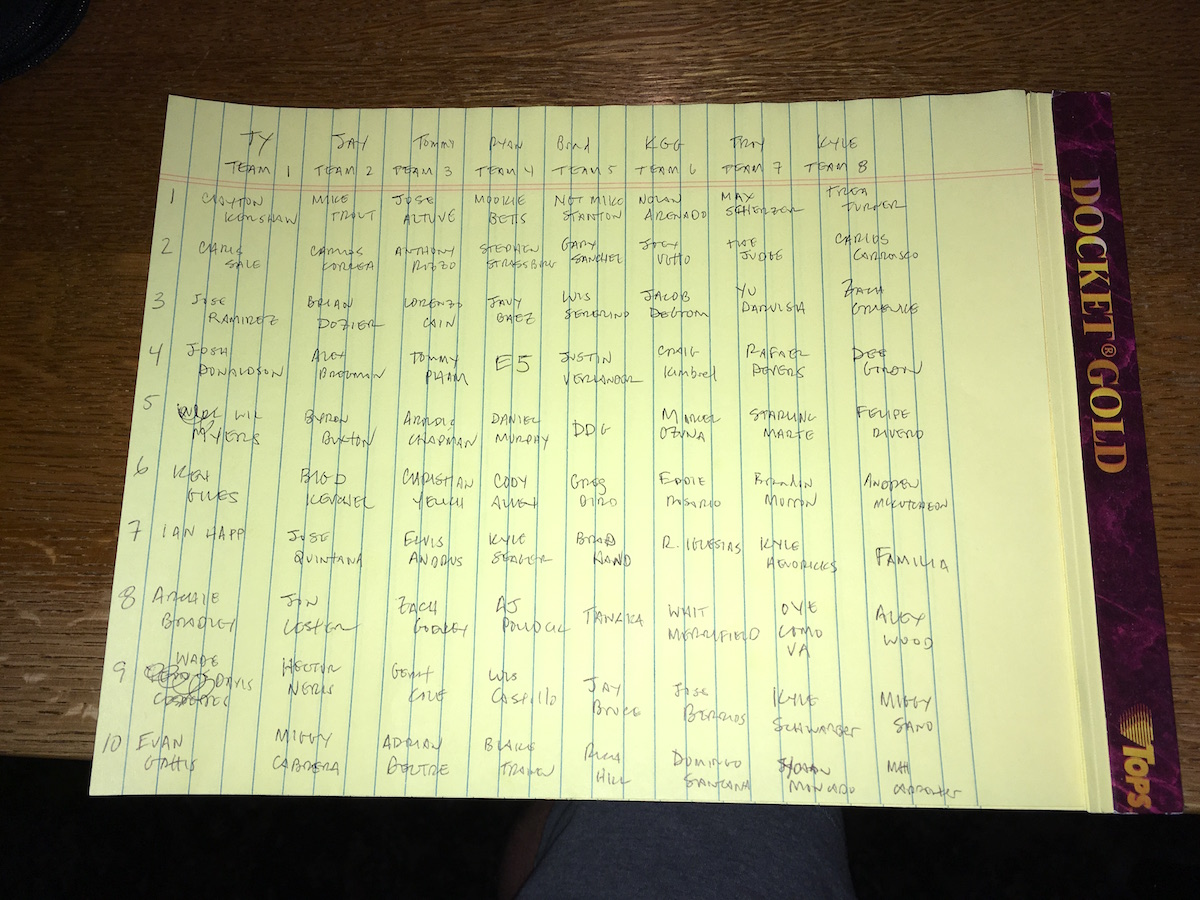 TY JAY TOMMY RYAN Brad KGG TROY KYLE
TEAM 1 TEAM 2 TEAM 3 TEAM 4 TEAM 5 TEAM 6 TEAM 7 TEAM 8
1 CLAYTON MIKE JOSE MOOKIE NOT MIKE NOLAN MAX TREA
KERSHAW TROUT ALTUVE BETTS STANTON ARENADO SCHERZER TURNER
2 CHRIS CARLOS ANTHONY STEPHEN GARY JOEY THE CARLOS
SALE CORREA RIZZO STRASBURG SANCHEZ VOTTO JUDGE CARRASCO
3 JOSE BRIAN LORENZO JAVY LUIS JACOB YU ZACH
RAMIREZ DOZIER CAIN BAEZ SEVERINO DEGROM DARVISH GREINKE
4 JOSH ALEX TOMMY E5 JUSTIN CRAIG RAFAEL DEE
DONALDSON BREGMAN PHAM VERLANDER Kimbrel DEVERS GORDON
5 WIL BYRON AROLDIS DANIEL DDG MARCEL STARLING FELIPE
MYERS BUXTON CHAPMAN MURPHY OZUNA MARTE RIVERO
6 KEN BRAD CHRISTIAN CODY GREG EDDIE Brandon ANDREW
GILES KEUCHEL YELICH ALLEN BIRD ROSARIO MORROW MCCUTCHEON
7 IAN HAPP JOSE ELVIS KYLE BRAD R. IGLESIAS KYLE FAMILIA
QUINTANA ANDRUS SEAGER HAND HENDRICKS
8 ARCHIE JON ZACH AJ TANAKA WHIT OYE ALEX
BRADLEY LESTER GODLEY POLLOCK MERRIFIELD COMO WOOD
VA
9 WADE HECTOR GERRIT LUIS JAY JOSE KYLE MIGGY
DAVIS NERIS COLE CASTILLO BRUCE BERRIOS SCHWARBER SANO
10 EVAN MIGGY ADRIAN BLAKE RICH DOMINGO YOAN Matt
GATTIS CABRERA BELTRE TREINEN HILL SANTANA MONCADO CARPENTER
DOCKET® GOLD
TOPS